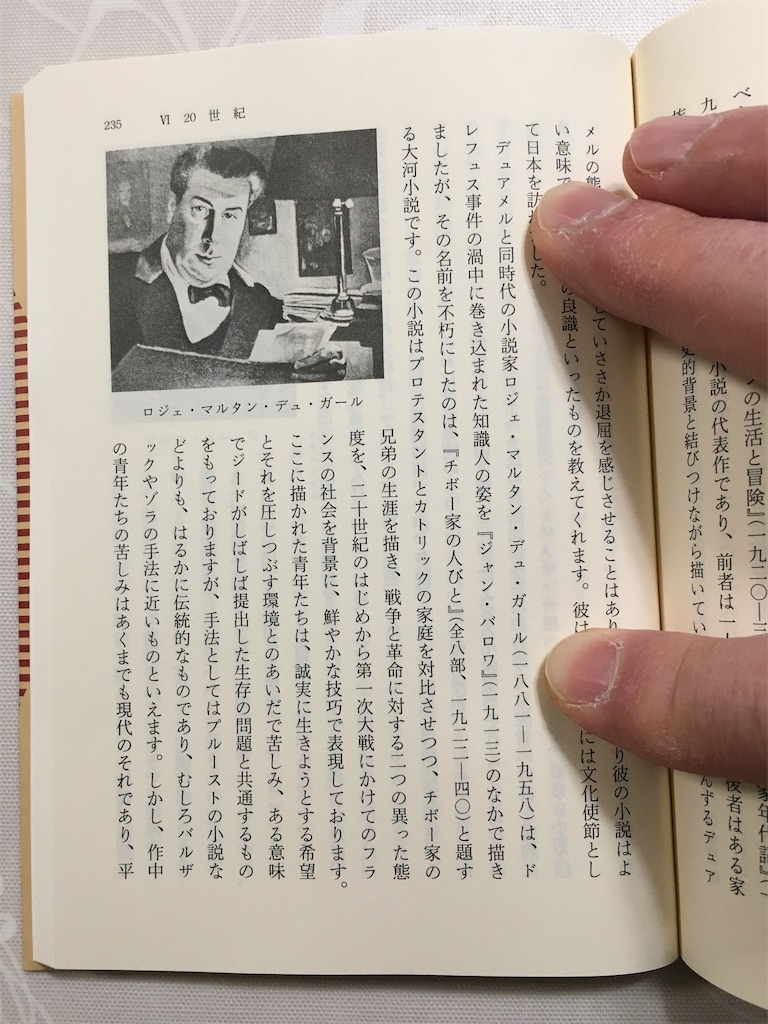 ベ
の生活と冒険』(一九二〇―三
家年代記』(一
九
小説の代表作であり、前者は一
後者はある家
史的背景と結びつけながら描いてい
んずるデュア
235 Ⅵ 20世紀
メルの
していささか退屈を感じさせることはあり
り彼の小説はよ
い意味で
の良識といったものを教えてくれます。彼は
には文化使節とし
て日本を訪
した。
デュアメルと同時代の小説家ロジェ・マルタン・デュ・ガール(一八八一―一九五八)は、ド
レフュス事件の渦中に巻き込まれた知識人の姿を『ジャン・バロワ』(一九一三)のなかで描き
ましたが、その名前を不朽にしたのは、『チボー家の人びと』(全八部、一九二二―四〇)と題す
る大河小説です。この小説はプロテスタントとカトリックの家庭を対比させつつ、チボー家の
兄弟の生涯を描き、戦争と革命に対する二つの異った態
度を、二十世紀のはじめから第一次大戦にかけてのフラ
ンスの社会を背景に、鮮やかな技巧で表現しております。
ここに描かれた青年たちは、誠実に生きようとする希望
とそれを圧しつぶす環境とのあいだで苦しみ、ある意味
でジードがしばしば提出した生存の問題と共通するもの
をもっておりますが、手法としてはプルーストの小説な
どよりも、はるかに伝統的なものであり、むしろバルザ
ックやゾラの手法に近いものといえます。しかし、作中
の青年たちの苦しみはあくまでも現代のそれであり、平
ロジェ・マルタン・デュ・ガール